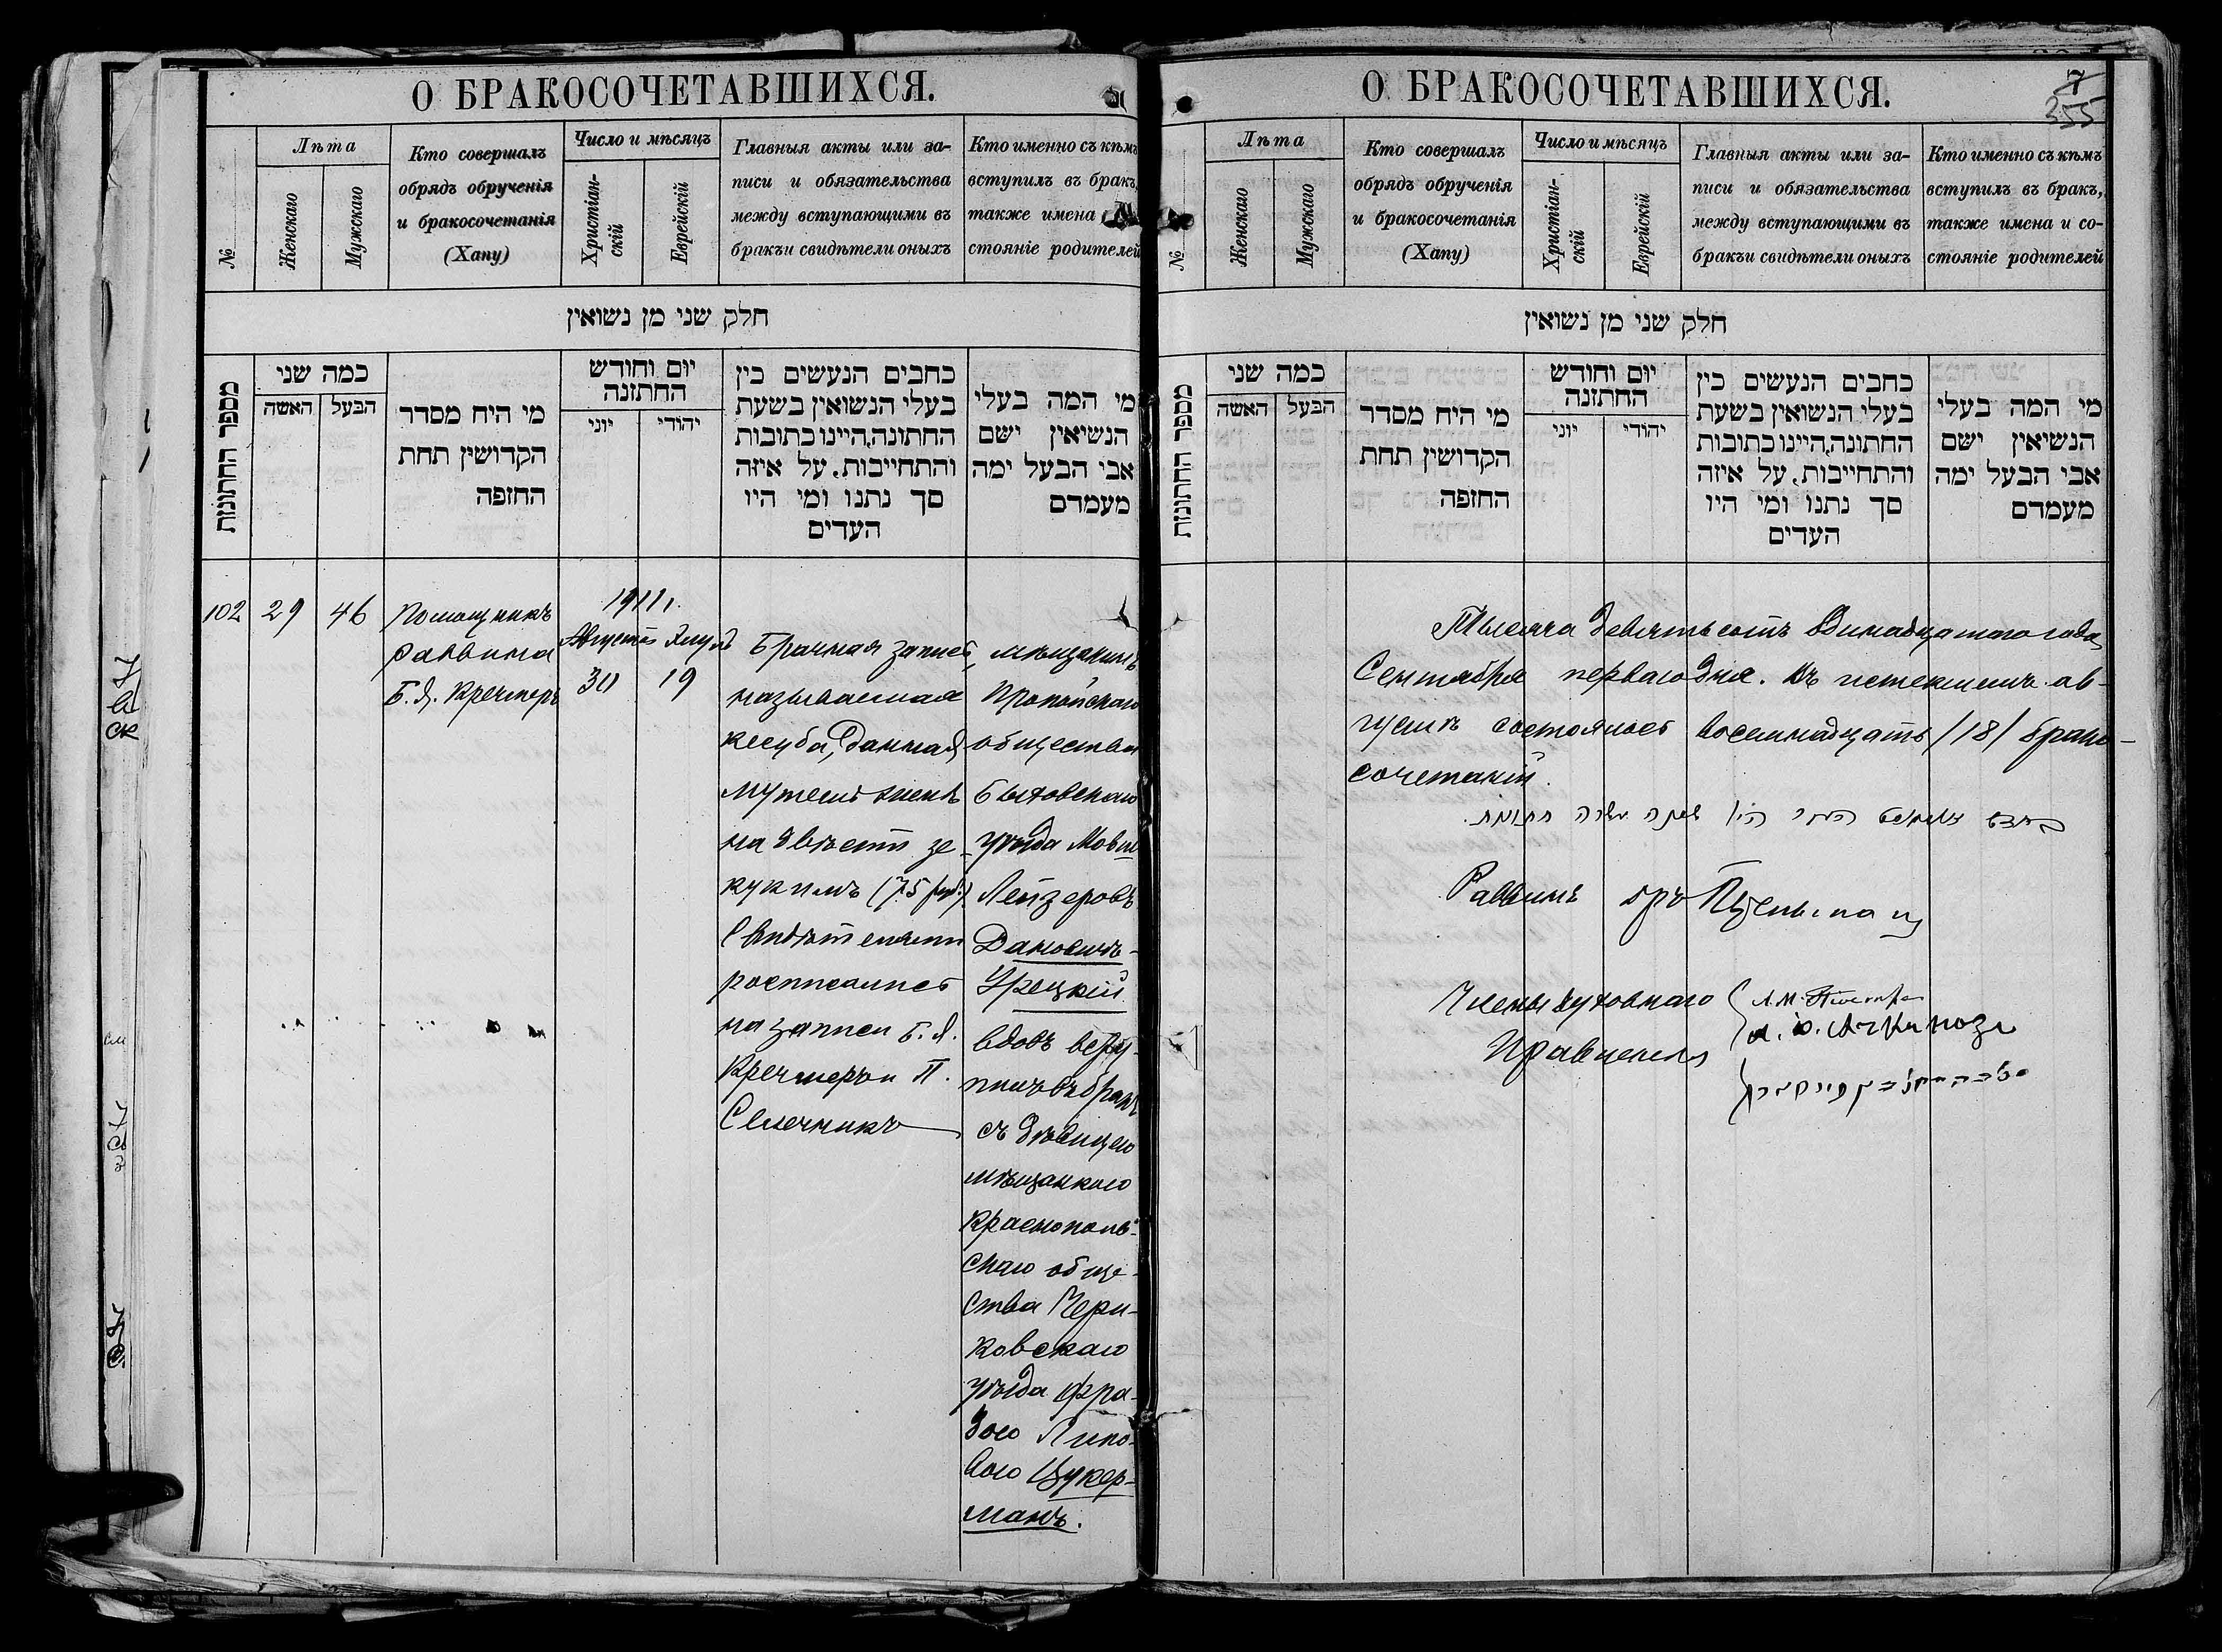 О БРАКОСОЧЕТАВШИХСЯ.
№
Лѣта
Женскаго
Мужскаго
Кто совершалъ
обрядъ обрученія
и бракосочетанія
(Хапу)
Число и мѣсяцъ
Христіан-
скій
Еврейскій
Главныя акты или за-
писи и обязательства
между вступающими въ
бракъ и свидѣтели оныхъ
Кто именно съ кѣмъ
вступилъ въ бракъ,
также имена
стояніе родителей
חלק שני מן נשואין
מספר החתונות
כמה שני
האשה
הבעל
מי היח מסדר
הקדושין תחת
החופה
יום וחודש
החתונה
יוני
יהודי
כחבים הנעשים כין
בעלי הנשואין בשעת
החתונה,היינו כתובות
והתחייבות, על איזה
סך נתנו ומי היו
העדים
מי המה בעלי
הנשיאין ישם
אבי הבעל ימה
מעמדם
102
29
46
Помощникъ
раввина
Б. Я. Кречмеръ
1911 г.
Августъ
30
Элулъ
19
Брачная запись,
называемая
кесуба, данная
мужемъ женѣ
на двѣсти зе-
кукимъ (75 руб.)
Свидѣтелями
росписались
на записи Б. Я.
Кречмеръ и П.
Сапожникъ
мѣщанинъ
Пропойскаго
общества
Быховскаго
уѣзда Мовша
Лейзеровъ
Дановичъ-
Урецкій
вдовъ всту-
пилъ въ бракъ
съ дѣвицею
мѣщанкою
Краснополь-
скаго обще-
ства Чери-
ковскаго
уѣзда Фра-
дою Липо-
вою Цукер-
манъ.
О БРАКОСОЧЕТАВШИХСЯ.
7
355
№
Лѣта
Женскаго
Мужскаго
Кто совершалъ
обрядъ обрученія
и бракосочетанія
(Хапу)
Число и мѣсяцъ
Христіан-
скій
Еврейскій
Главныя акты или за-
писи и обязательства
между вступающими въ
бракъ и свидѣтели оныхъ
Кто именно съ кѣмъ
вступилъ въ бракъ,
также имена и со-
стояніе родителей
חלק שני מן נשואין
מספר החתונות
כמה שני
האשה
הבעל
מי היח מסדר
הקדושין תחת
החופה
יום וחודש
החתונה
יוני
יהודי
כחבים הנעשים כין
בעלי הנשואין בשעת
החתונה,היינו כתובות
והתחייבות, על איזה
סך נתנו ומי היו
העדים
מי המה בעלי
הנשיאין ישם
אבי הבעל ימה
מעמדם
Тысяча девятьсотъ одинадцатаго года
Сентября перваго дня. Въ истекшемъ ав-
густѣ состоялось восемнадцать /18/ брако-
сочетаній.
היו שמנה עשרה חתונות.
Раввинъ
Члены духовнаго
Правленія